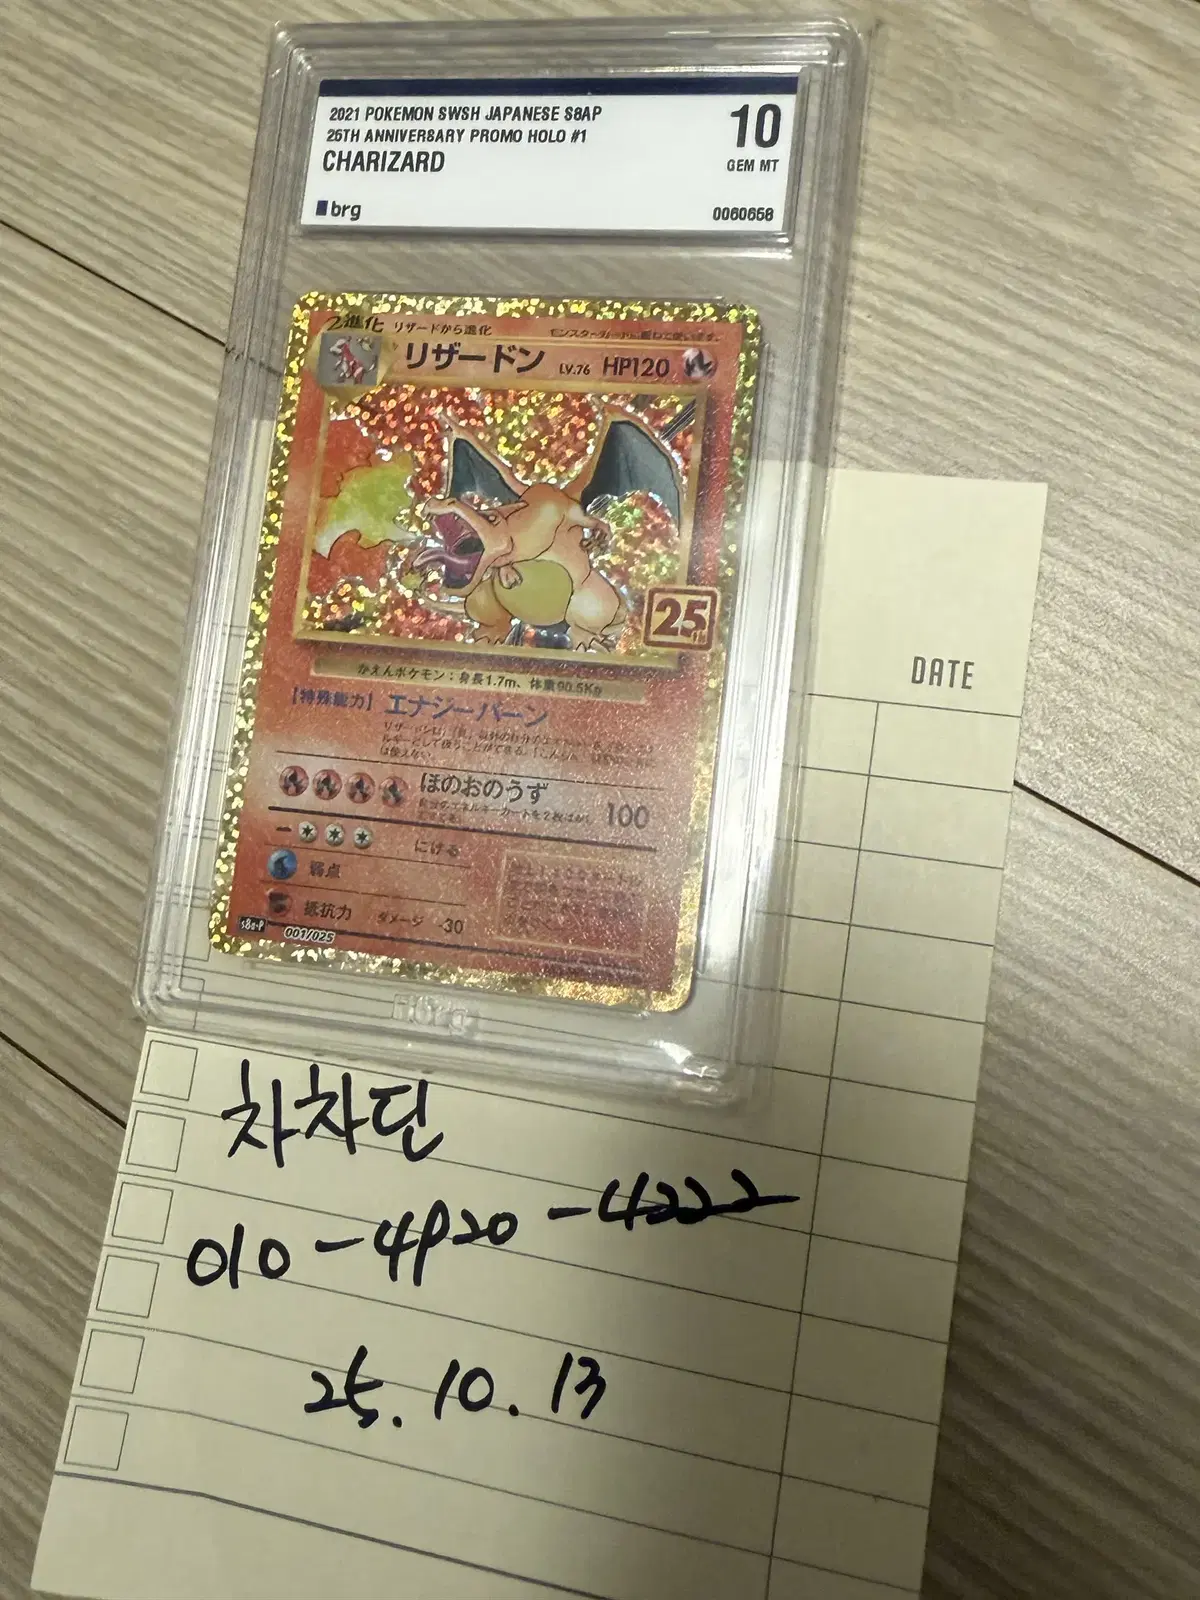 2021 POKEMON SWSH JAPANESE S8AP
25TH ANNIVERSARY PROMO HOLO #1
CHARIZARD
10
GEM MT
brg
0060658
2進化 リザードから進化
リザードン LV.76 HP120
25
かえんポケモン:身長1.7m、体重90.5Kg
【特殊能力】 エナジーバーン
ほのおのうず 100
にげる
弱点
抵抗力 ダメージ -30
s8a-P 001/025
brg
DATE
차차딘
010-4920-4222
25.10.13